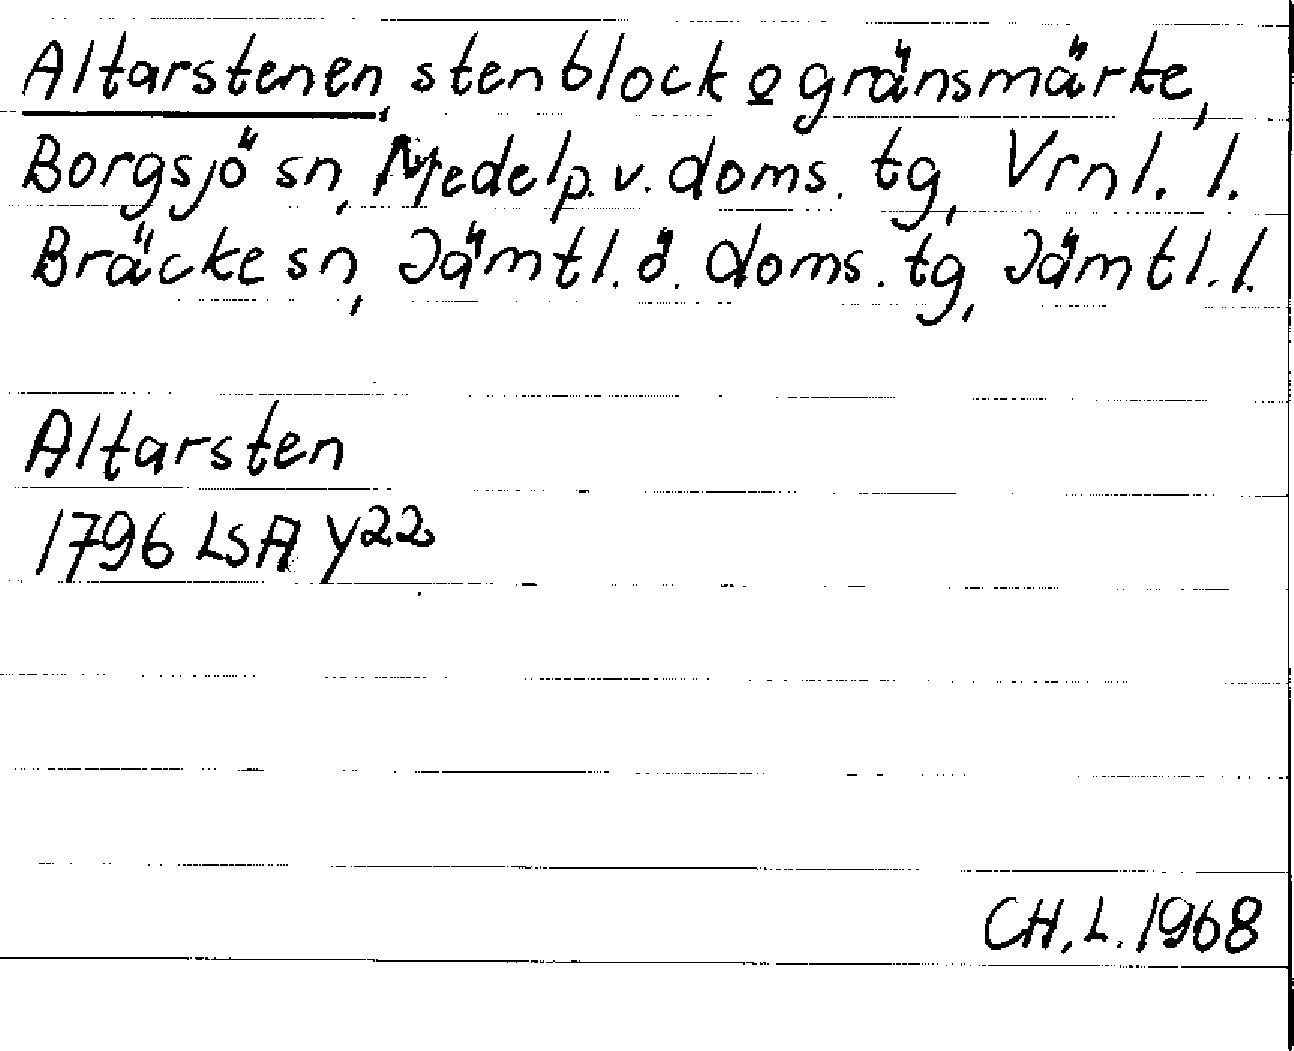 Altarstenen, stenblock o gränsmärke,
Borgsjö sn, Medelp. v. doms. tg, Vrnl. l.
Bräcke sn, Jämtl. ö. doms. tg, Jämtl. l.
Altarsten
1796 LSA Y22
CH, L. 1968